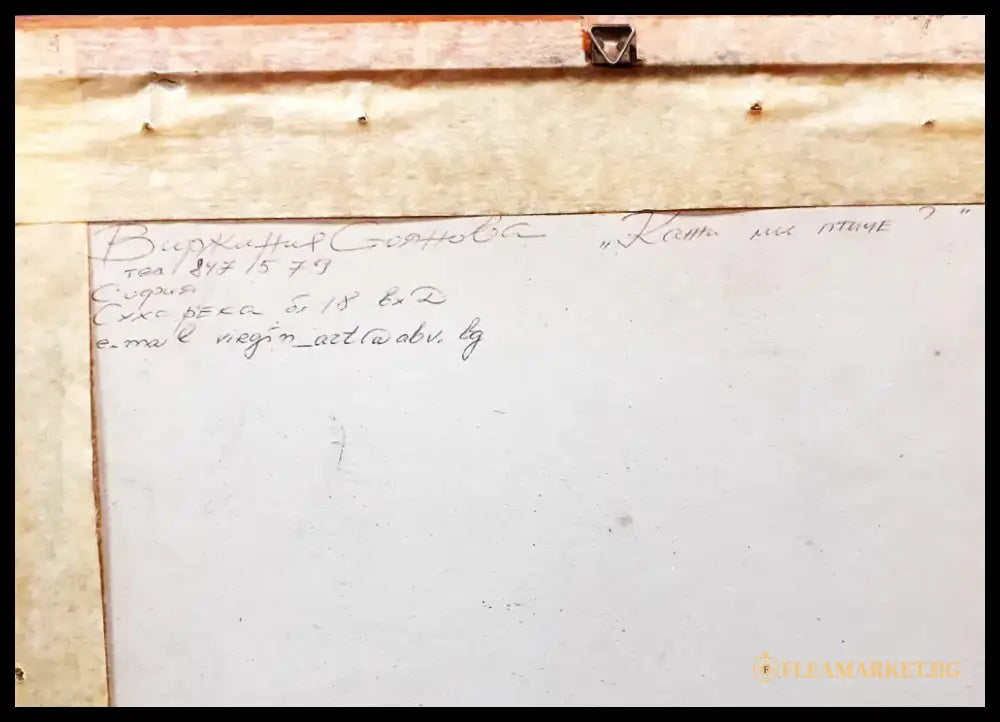 Виржиния Стоянова
„Кажи ми птиче ?“
тел 847 15 79
София
Суха река бл 18 вх Д
e-mail virgin_art@abv.bg
FLEAMARKET.BG